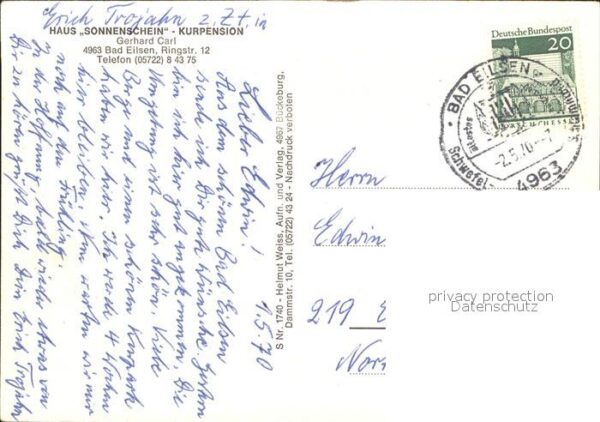 Erich Trojahn z. Zt. in
HAUS „SONNENSCHEIN" - KURPENSION
Gerhard Carl
4963 Bad Eilsen, Ringstr. 12
Telefon (05722) 8 43 75
1.5.70
Lieber Edwin!
Aus dem schönen Bad Eilsen
sende ich Dir gute Wünsche. Gestern
bin ich hier gut angekommen, die
Umgebung ist sehr schön. Viele
Berge und einen schönen Kurpark
haben wir hier. Ich werde 4 Wochen
hier bleiben. Nun warten wir nur
noch auf den Frühling.
In der Hoffnung, bald wieder etwas von
Dir zu hören grüßt Dich Dein Erich Trojahn
S Nr. 1740 - Helmut Weiss, Aufn. und Verlag, 4967 Bückeburg,
Dammstr. 10, Tel. (05722) 43 24 - Nachdruck verboten
Deutsche Bundespost
20
BAD EILSEN
ältestes
Schwefel-
-2.5.70.-7
4963
Herrn
Edwin
219
privacy protection
Datenschutz